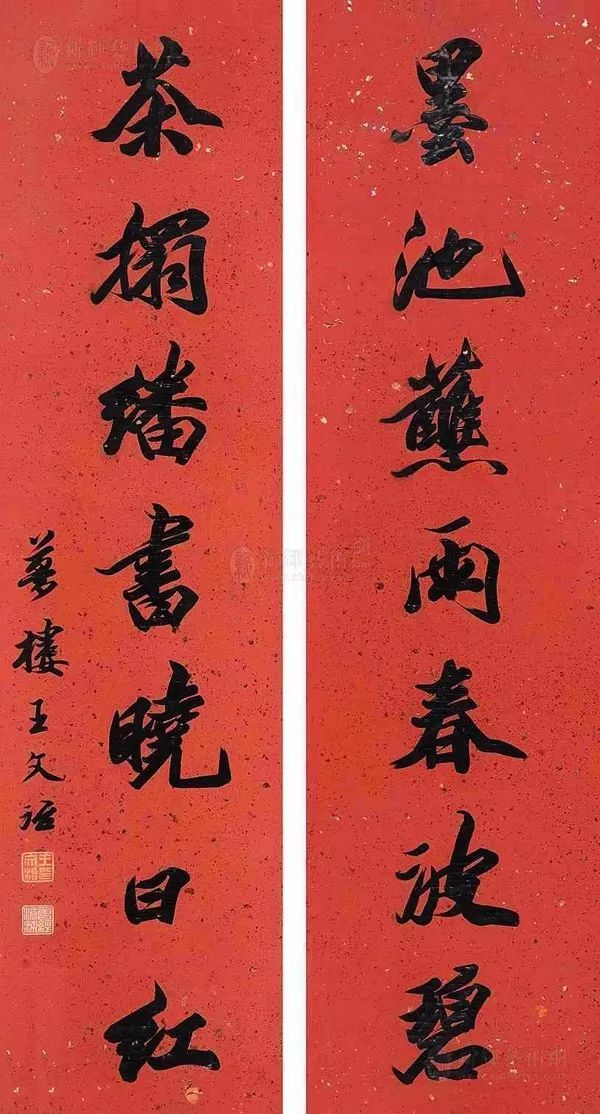 墨池蘸雨春波碧
茶榻繙書曉日紅
夢樓王文治